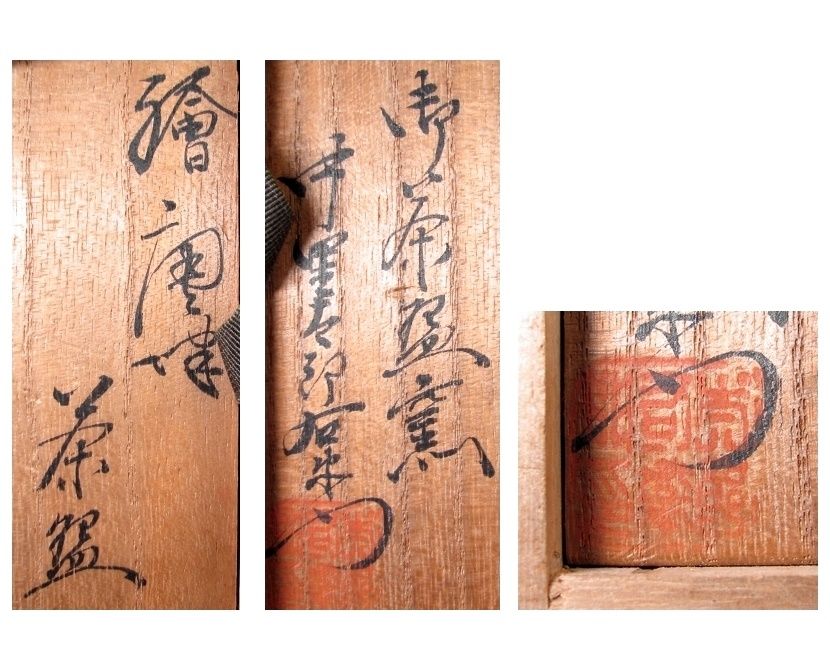 繪唐津
茶盌
御茶盌窯
中里太郎右衛門
門